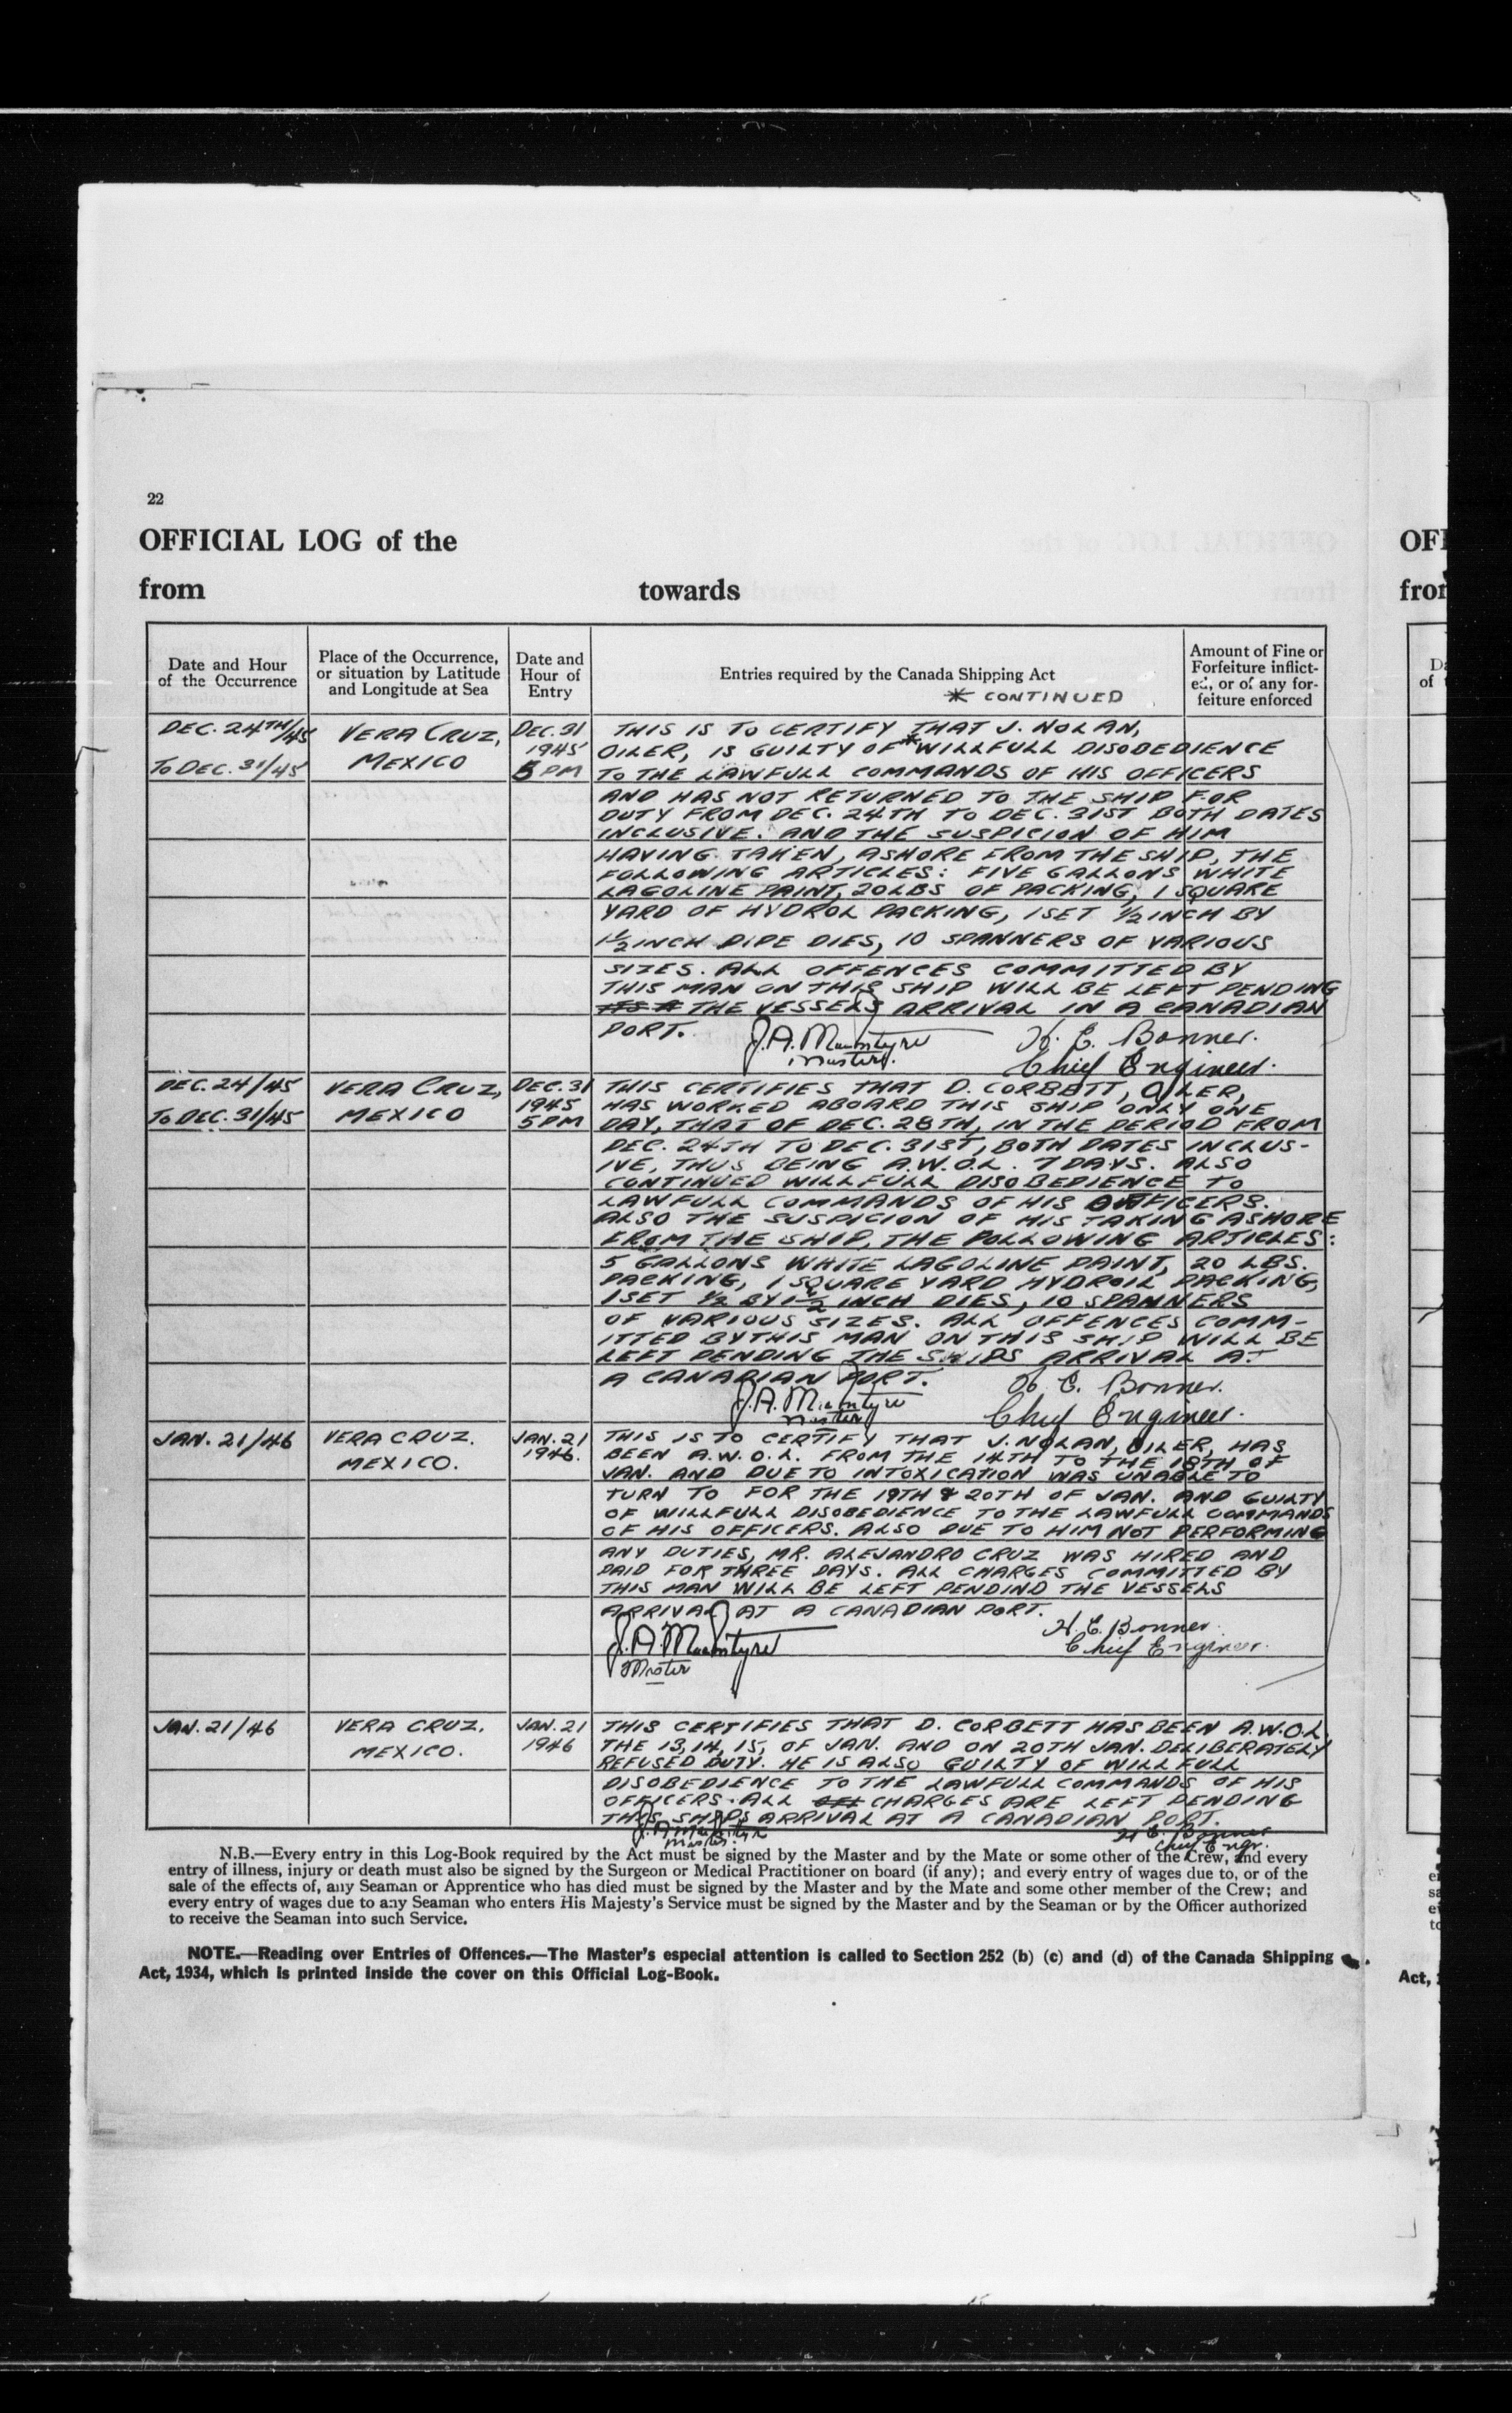 22
OFFICIAL LOG of the
from towards
Date and Hour of the Occurrence
Place of the Occurrence, or situation by Latitude and Longitude at Sea
Date and Hour of Entry
Entries required by the Canada Shipping Act
* CONTINUED
Amount of Fine or Forfeiture inflicted, or of any forfeiture enforced
DEC. 24TH/45
TO DEC. 31/45
VERA CRUZ,
MEXICO
DEC. 31
1945
5 PM
THIS IS TO CERTIFY THAT J. NOLAN,
OILER, IS GUILTY OF * WILLFULL DISOBEDIENCE
TO THE LAWFULL COMMANDS OF HIS OFFICERS
AND HAS NOT RETURNED TO THE SHIP FOR
DUTY FROM DEC. 24TH TO DEC. 31ST BOTH DATES
INCLUSIVE. AND THE SUSPICION OF HIM
HAVING TAKEN, ASHORE FROM THE SHIP, THE
FOLLOWING ARTICLES: FIVE GALLONS WHITE
LAGOLINE PAINT, 20 LBS OF PACKING, 1 SQUARE
YARD OF HYDROL PACKING, 1 SET 1/2 INCH BY
1 1/2 INCH PIPE DIES, 10 SPANNERS OF VARIOUS
SIZES. ALL OFFENCES COMMITTED BY
THIS MAN ON THIS SHIP WILL BE LEFT PENDING
THE VESSELS ARRIVAL IN A CANADIAN
PORT.
J. A. MacIntyre
Master.
H. E. Bonner.
Chief Engineer.
DEC. 24/45
TO DEC. 31/45
VERA CRUZ,
MEXICO
DEC. 31
1945
5 PM
THIS CERTIFIES THAT D. CORBETT, OILER,
HAS WORKED ABOARD THIS SHIP ONLY ONE
DAY, THAT OF DEC. 28TH, IN THE PERIOD FROM
DEC. 24TH TO DEC. 31ST, BOTH DATES INCLUS-
IVE, THUS BEING A.W.O.L. 7 DAYS. ALSO
CONTINUED WILLFULL DISOBEDIENCE TO
LAWFULL COMMANDS OF HIS OFFICERS.
ALSO THE SUSPICION OF HIS TAKING ASHORE
FROM THE SHIP, THE FOLLOWING ARTICLES:
5 GALLONS WHITE LAGOLINE PAINT, 20 LBS.
PACKING, 1 SQUARE YARD HYDROIL PACKING,
1 SET 1/2 BY 1 1/2 INCH DIES, 10 SPANNERS
OF VARIOUS SIZES. ALL OFFENCES COMM-
ITTED BY THIS MAN ON THIS SHIP WILL BE
LEFT PENDING THE SHIPS ARRIVAL AT
A CANADIAN PORT.
J. A. MacIntyre
Master
H. E. Bonner.
Chief Engineer.
JAN. 21/46
VERA CRUZ.
MEXICO.
JAN. 21
1946.
THIS IS TO CERTIFY THAT J. NOLAN, OILER, HAS
BEEN A.W.O.L. FROM THE 14TH TO THE 18TH OF
JAN. AND DUE TO INTOXICATION WAS UNABLE TO
TURN TO FOR THE 19TH & 20TH OF JAN. AND GUILTY
OF WILLFULL DISOBEDIENCE TO THE LAWFULL COMMANDS
OF HIS OFFICERS. ALSO DUE TO HIM NOT PERFORMING
ANY DUTIES, MR. ALEJANDRO CRUZ WAS HIRED AND
PAID FOR THREE DAYS. ALL CHARGES COMMITTED BY
THIS MAN WILL BE LEFT PENDIND THE VESSELS
ARRIVAL AT A CANADIAN PORT.
J. A. MacIntyre
Master
H. E. Bonner.
Chief Engineer.
JAN. 21/46
VERA CRUZ.
MEXICO.
JAN. 21
1946
THIS CERTIFIES THAT D. CORBETT HAS BEEN A.W.O.L.
THE 13, 14, 15, OF JAN. AND ON 20TH JAN. DELIBERATELY
REFUSED DUTY. HE IS ALSO GUILTY OF WILLFULL
DISOBEDIENCE TO THE LAWFULL COMMANDS OF HIS
OFFICERS. ALL CHARGES ARE LEFT PENDING
THIS SHIPS ARRIVAL AT A CANADIAN PORT.
J. A. MacIntyre
Master.
H. E. Bonner
Chief Engr.
N.B.—Every entry in this Log-Book required by the Act must be signed by the Master and by the Mate or some other of the Crew, and every
entry of illness, injury or death must also be signed by the Surgeon or Medical Practitioner on board (if any); and every entry of wages due to, or of the
sale of the effects of, any Seaman or Apprentice who has died must be signed by the Master and by the Mate and some other member of the Crew; and
every entry of wages due to any Seaman who enters His Majesty's Service must be signed by the Master and by the Seaman or by the Officer authorized
to receive the Seaman into such Service.
NOTE.—Reading over Entries of Offences.—The Master's especial attention is called to Section 252 (b) (c) and (d) of the Canada Shipping
Act, 1934, which is printed inside the cover on this Official Log-Book.